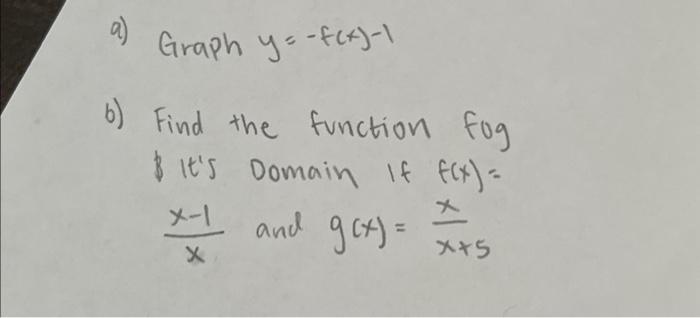 a) Graph y = -f(x)-1
b) Find the function fog
& It's Domain If f(x)=
x-1/x and g(x) = x/x+5